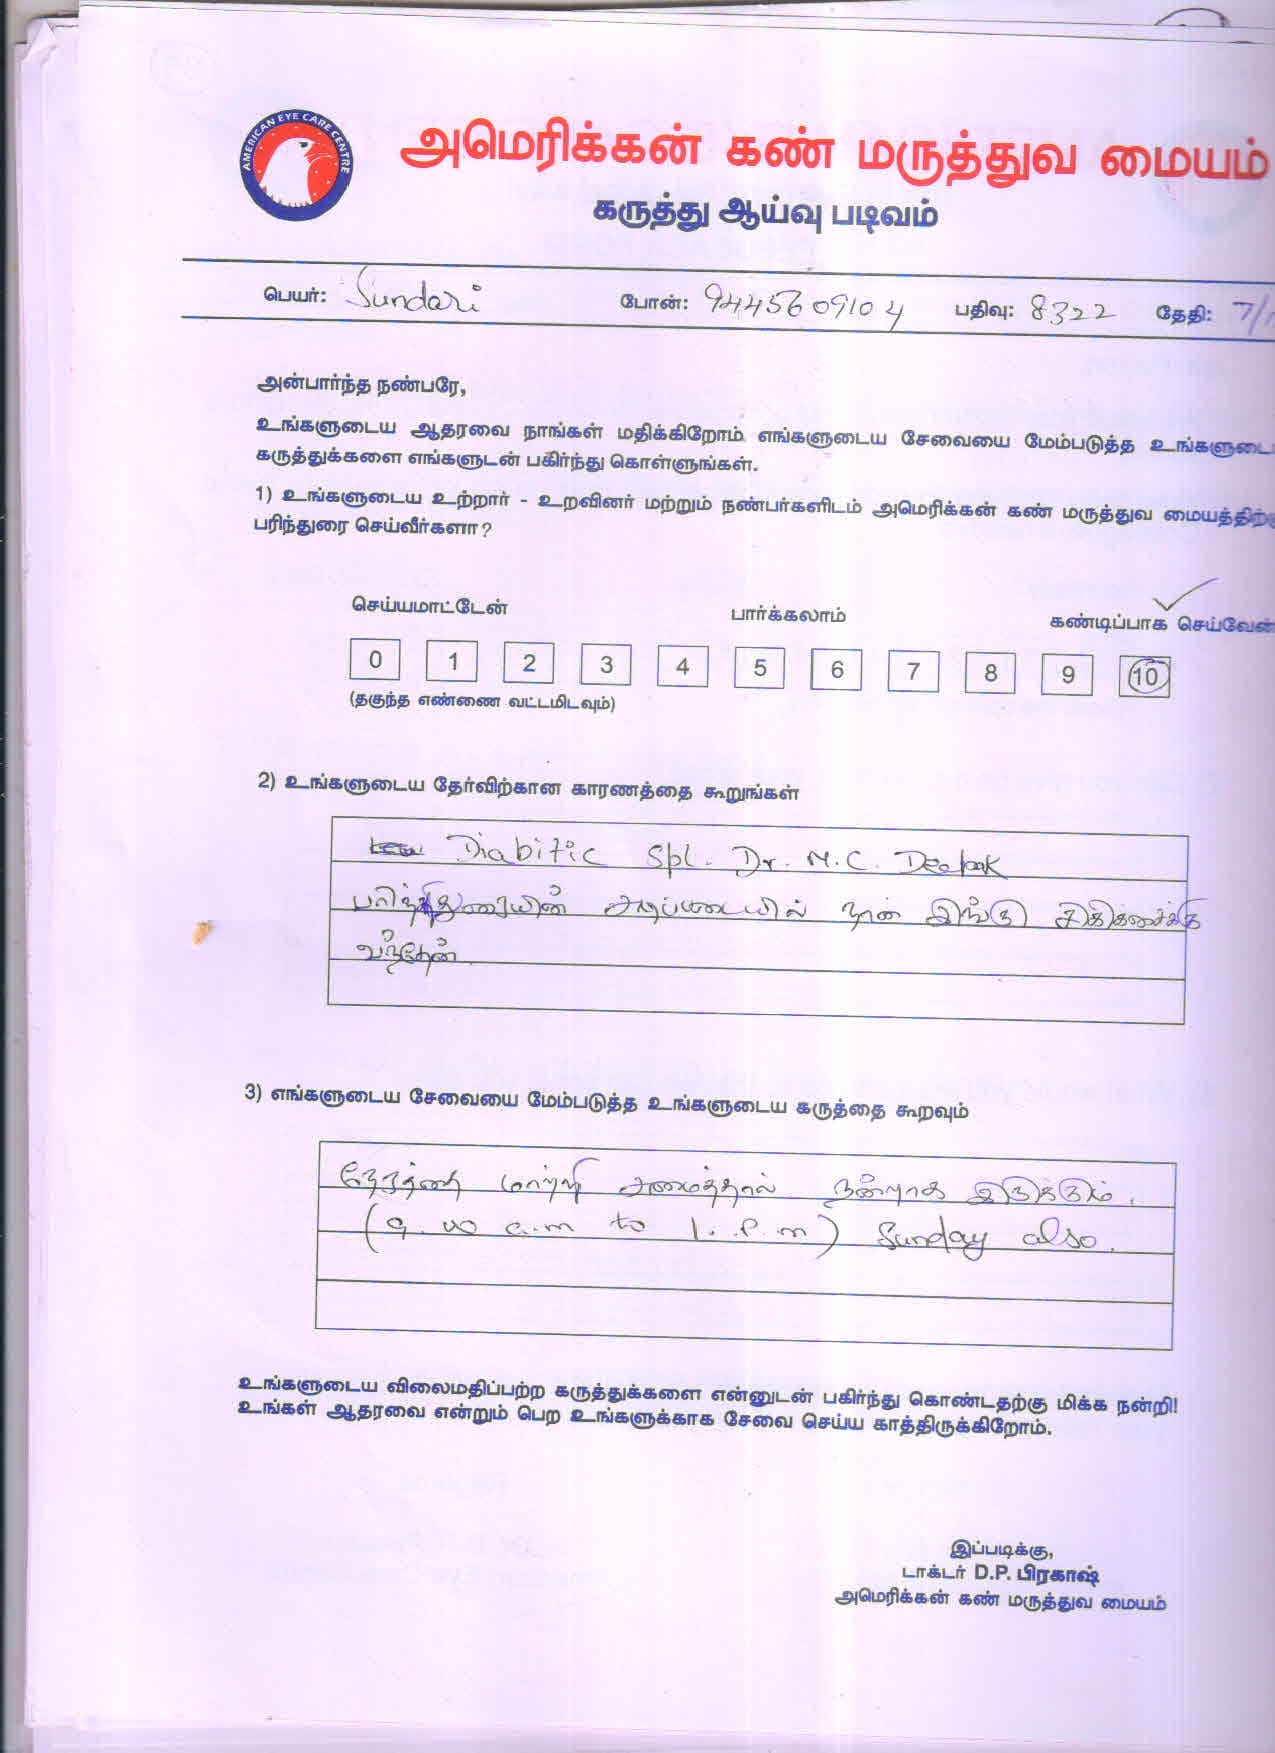 AMERICAN EYE CARE CENTRE
அமெரிக்கன் கண் மருத்துவ மையம்
கருத்து ஆய்வு படிவம்
பெயர்: Sundari போன்: 9445609104 பதிவு: 8322 தேதி: 7/
அன்பார்ந்த நண்பரே,
உங்களுடைய ஆதரவை நாங்கள் மதிக்கிறோம் எங்களுடைய சேவையை மேம்படுத்த உங்களுடை
கருத்துக்களை எங்களுடன் பகிர்ந்து கொள்ளுங்கள்.
1) உங்களுடைய உற்றார் - உறவினர் மற்றும் நண்பர்களிடம் அமெரிக்கன் கண் மருத்துவ மையத்திற்கு
பரிந்துரை செய்வீர்களா?
செய்யமாட்டேன் பார்க்கலாம் கண்டிப்பாக செய்வேன்
0 1 2 3 4 5 6 7 8 9 10
(தகுந்த எண்ணை வட்டமிடவும்)
2) உங்களுடைய தேர்விற்கான காரணத்தை கூறுங்கள்
Diabitic Spl. Dr. M.C. Deepak
பரிந்துரையின் அடிப்படையில் நான் இங்கு சிகிச்சைக்கு
வந்தேன்
3) எங்களுடைய சேவையை மேம்படுத்த உங்களுடைய கருத்தை கூறவும்
நேரத்தை மாற்றி அமைத்தால் நன்றாக இருக்கும்.
(9.00 a.m to 1. P.m) Sunday also.
உங்களுடைய விலைமதிப்பற்ற கருத்துக்களை என்னுடன் பகிர்ந்து கொண்டதற்கு மிக்க நன்றி!
உங்கள் ஆதரவை என்றும் பெற உங்களுக்காக சேவை செய்ய காத்திருக்கிறோம்.
இப்படிக்கு,
டாக்டர் D.P. பிரகாஷ்
அமெரிக்கன் கண் மருத்துவ மையம்